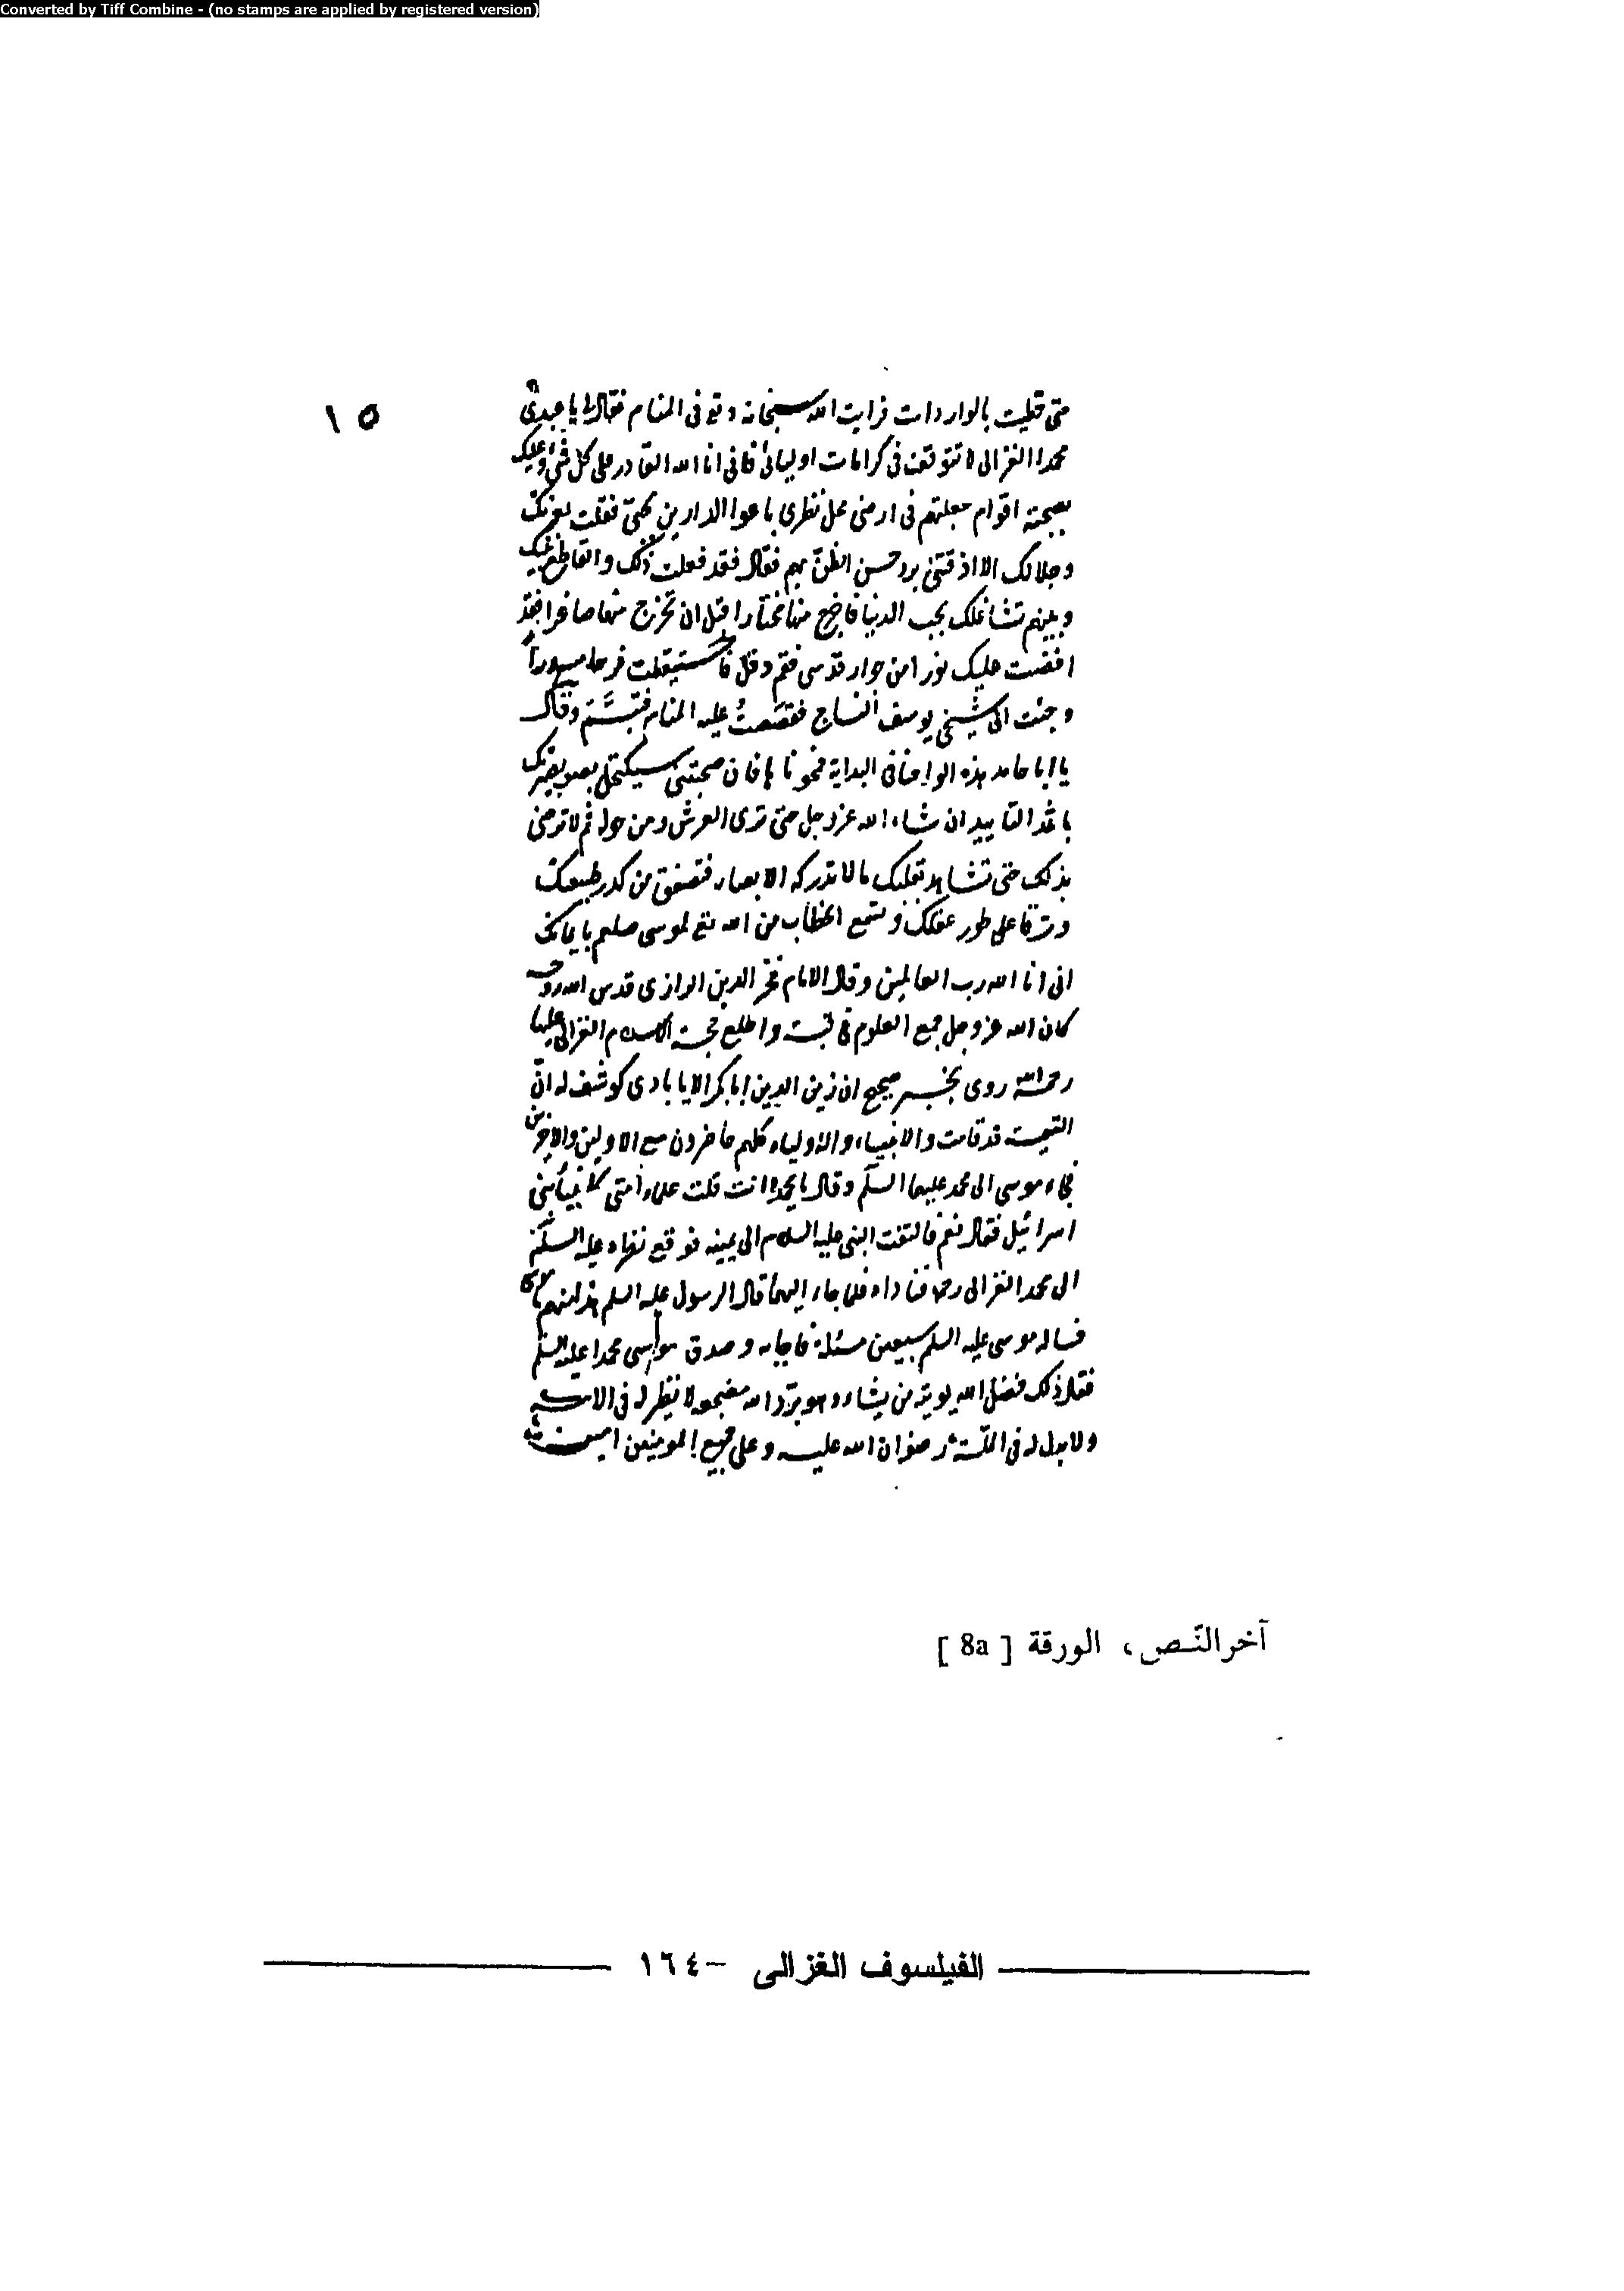 Converted by Tiff Combine - (no stamps are applied by registered version)
١٥
بالواردات فرايت الله سبحانه وتع فى المنام فقال لى يا عبدى
محمدا الغزالى لا تتوقف فى كرامات اوليائى فانى انا الله القادر على كل شئ وعليك
بصحبة اقوام جعلتهم فى ارضى محل نظرى باعوا الدارين بحبى فقلت بعزتك
وجلالك الا اذقتنى برد حسن الظن بهم فقال فقد فعلت ذلك والقاطع بينك
وبينهم تشاغلك بحب الدنيا فاخرج منها مختارا قبل ان تخرج منها صاغرا فقد
افضت عليك نورا من جوار قدسى فقم وقل فاستيقظت فرحا مسرورا
وجئت الى شيخى يوسف النساج فقصصت عليه المنام فتبسم وقال
يا ابا حامد هذه الواحنا فى البداية فمحوناها فان صحبتنى سيكتحل بصر بصيرتك
باثمد التاييد ان شاء الله عز وجل حتى ترى العرش ومن حوله ثم لا ترضى
بذلك حتى تشاهد بقلبك ما لا تدركه الابصار فتصفى من كدر طبيعتك
وترقا على طور عقلك وتسمع الخطاب من الله تع لموسى صلعم
انى انا الله رب العالمين وقال الامام فخر الدين الرازى قدس الله روحه
كان الله عز وجل جمع العلوم فى قبة واطلع حجة الاسلام الغزالى عليها
رحمة الله روى بخبر صحيح ان زين الدين ابا بكر كوشف له ان
القيمة قد قامت والانبياء والاولياء كلهم حاضرون مع الاولين والاخرين
فجاء موسى الى محمد عليهما السلم وقال يا محمد انت قلت علماء امتى كانبياء بنى
اسرائيل فقال نعم فالتفت النبى عليه السلام الى يمينه فوقع نظره عليه السلم
الى محمد الغزالى رحمه فناداه فلما جاء اليهما قال الرسول عليه السلم هذا منهم
فساله موسى عليه السلم سبعين مسئلة فاجابه وصدق موسى محمدا عليه السلم
فقال ذلك فضل الله يوتيه من يشاء وهو برد الله مضجعه لا نظير له فى الامة
ولا بدل له فى الملة رضوان الله عليه وعلى جميع المومنين امين
آخر النّص، الورقة [ 8a ]
الفيلسوف الغزالى -١٦٤